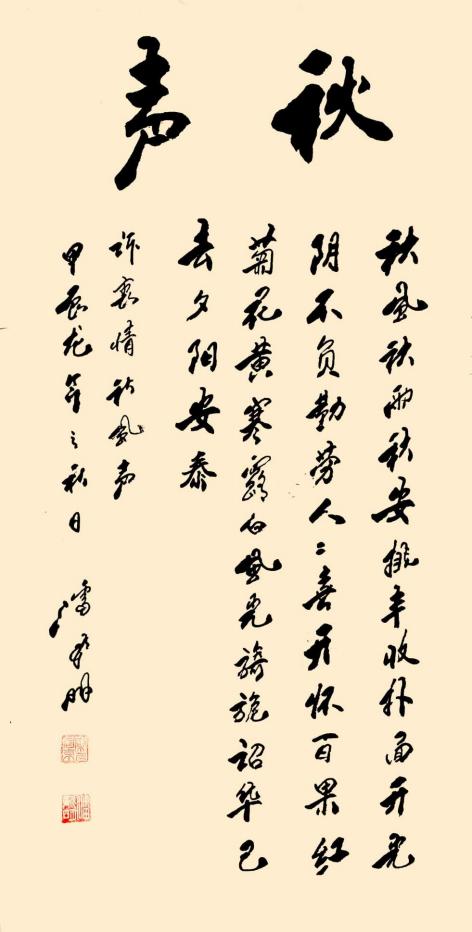 秋声
秋風秋雨秋安排丰收扑面开光
阴不负勤劳人〻喜开怀百果红
菊花黄寒露白風光旖旎韶华已
去夕阳安泰
诉衷情秋風声
甲辰龙年之秋日 潘